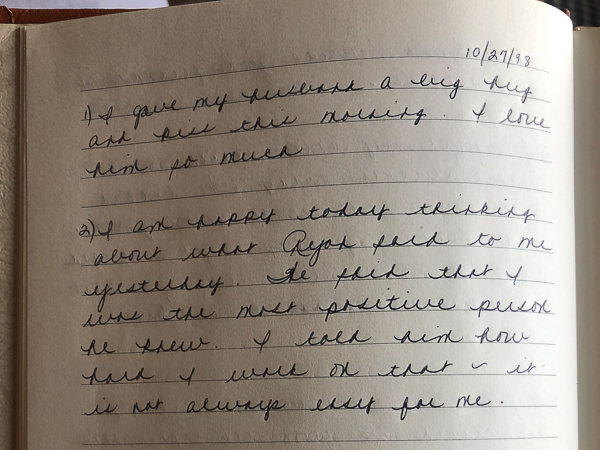 10/27/98
1) I gave my husband a big hug
and kiss this morning. I love
him so much
2) I am happy today thinking
about what Ryan said to me
yesterday. He said that I
was the most positive person
he knew. I told him how
hard I work on that ~ it
is not always easy for me.